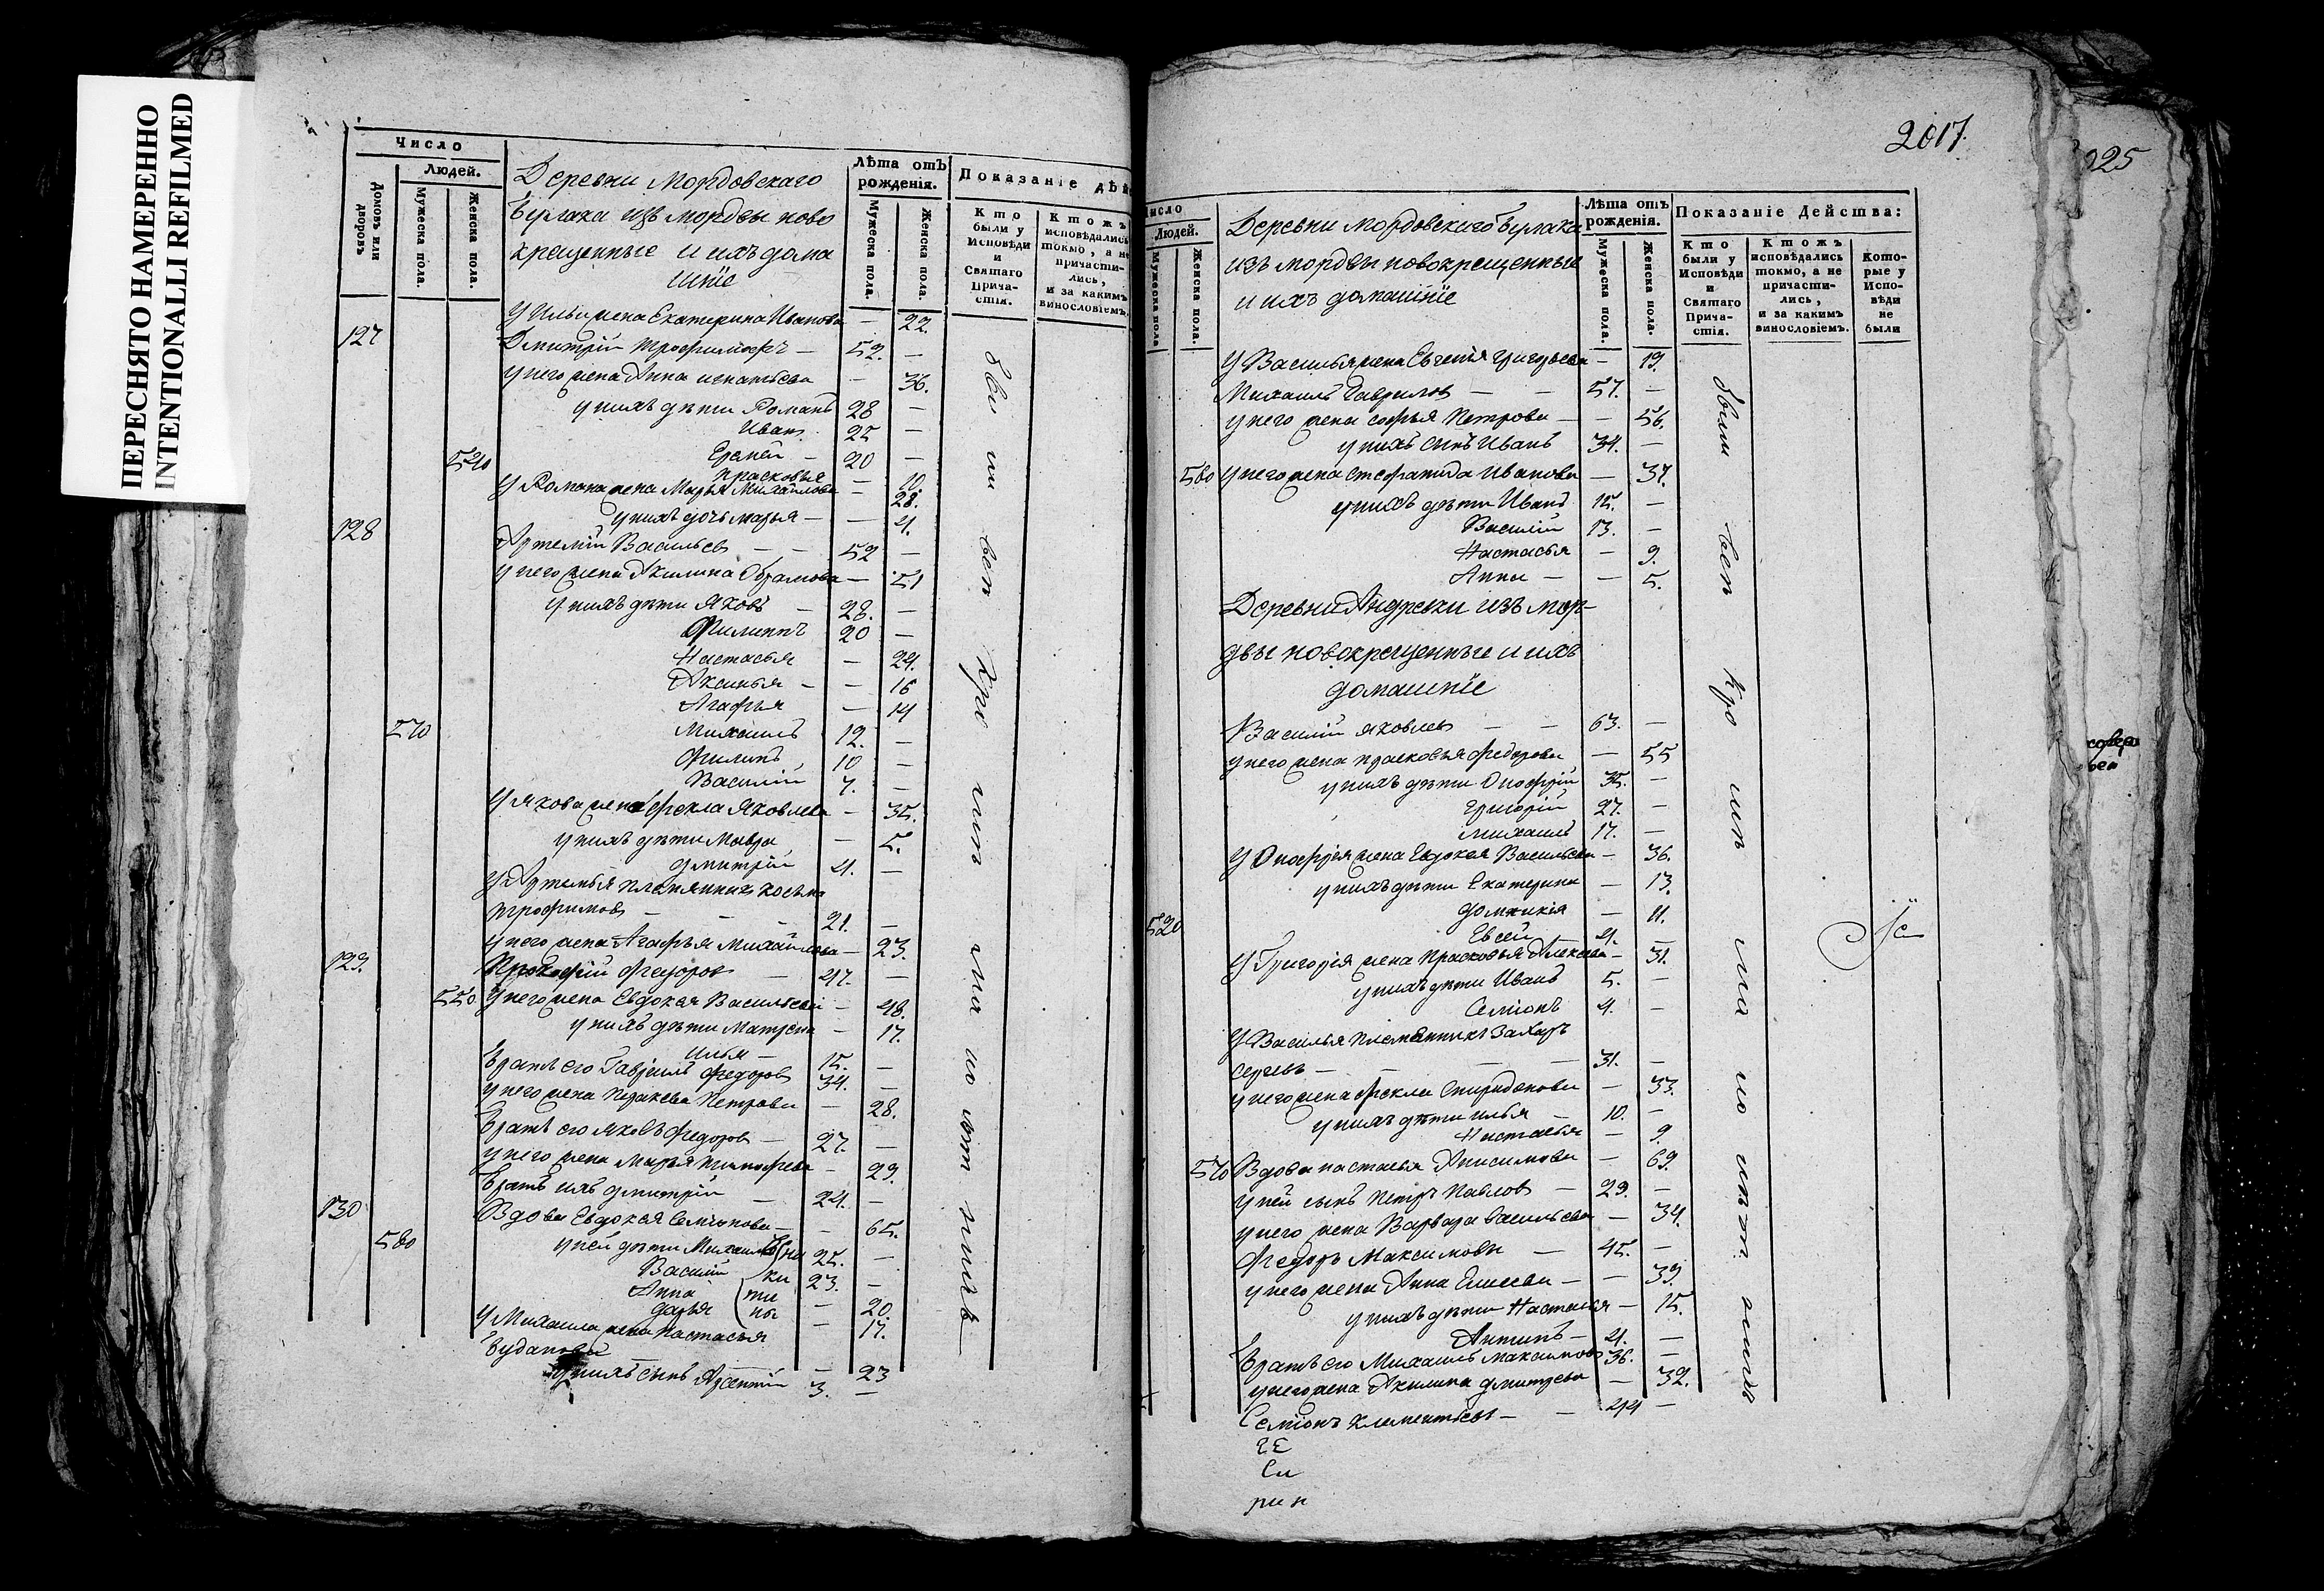 ПЕРЕСНЯТО НАМЕРЕННО
INTENTIONALLI REFILMED
Число
Людей.
Домовъ или дворовъ
Мужеска пола.
Женска пола.
Деревни Мордовскаго
Бурлака изъ мордвы ново
крещенные и ихъ дома
шнїе
Лѣта отъ рожденія.
Мужеска пола.
Женска пола.
Показаніе дѣй
Кто были у Исповѣди и Святаго Прича-стія.
Ктожъ исповѣдались токмо, а не причасти-лись, и за какимъ винословіемъ.
У Ильи жена Екатерина Иванова — 22
127 Дмитрій Трофимовъ — 52. —
у него жена Анна игнатьева — 36.
у нихъ дѣти Романъ 28 —
Иванъ 25 —
540 Ермей — 20 —
Прасковья — 10.
У Романа жена Марья Михайлова — 28.
у нихъ дочь марья — — 4.
128 Артемїй Васильев — — 52 —
у него жена Акилина Обрамова — 51
у нихъ дѣти Яковъ — 28. —
Филиппъ 20 —
Настасья — 24.
Аксинья — — 16
Агафья — 14
570 Михаилъ 12. —
Филипъ 10 —
Василїй 7. —
У якова жена фекла Яковлева — 35.
у нихъ дѣти Мавра — 5.
дмитрїй 4. —
У Артемья племянникъ косьма
трофимовъ — — — 21. —
у него жена Агафья Михайлова — 23.
129. Прокофїй Федоровъ — 47. —
550 У него жена Евдокея Васильева — 48.
у нихъ дѣти Матрена — 17.
Илья — 15. —
Братъ его Гаврїилъ Федоровъ 34. —
у него жена Парасковья Петрова — 28.
Братъ его яковъ Федоровъ — 27. —
у него жена марья тимофеева — 29.
Братъ ихъ дмитрїй — 24. —
130 Вдова Евдокея Семїонова — — 65.
580 у ней дѣти Михаилъ 25. —
Василїй 23. —
Анна — 20.
дарья — 17.
У Михаила жена Настасья
— 23
у нихъ сынъ Арсентїй 3. —
2017.
025
Число
Людей.
Мужеска пола
Женска пола.
Деревни мордовскаго Бурлака
изъ мордвы новокрещенные
и ихъ домашнїе
Лѣта отъ рожденія.
Мужеска пола.
Женска пола.
Показаніе Действа:
Кто были у Исповѣди и Святаго Прича-стія.
Ктожъ исповѣдались токмо, а не причасти-лись, и за какимъ винословіемъ.
Кото-рые у Испо-вѣди не были
У Василья жена Евгенїя григорьева — 19.
Михаилъ Гавриловъ — — 57. —
у него жена софья Петрова — — 56.
у нихъ сынъ Иванъ 34. —
560 у него жена Стефанида Иванова — 37.
у нихъ дѣти Иванъ 15. —
Василїй 13. —
Настасья — 9.
Анна — — 5.
Деревни Андревки изъ мор-
двы новокрещенные и ихъ
домашнїе
Василїй яковлевъ — — 63. —
у него жена прасковья федорова — 55
у нихъ дѣти Онофрїй 35. —
григорїй 27. —
михаилъ 17. —
У Онофрїя жена Евдокея Васильева — 36.
у нихъ дѣти Екатерина — 13.
домникїя — 11.
520 Евсей 4. —
У Григорїя жена Прасковья — 31.
у нихъ дѣти Иванъ 5. —
Семїонъ 4. —
У Василья племянникъ Захаръ
сергевъ — — — 31. —
у него жена фекла Спиридонова — 33.
у нихъ дѣти илья — 10. —
Настасья — 9.
570 Вдова настасья Анисимова — 69.
у ней сынъ Петръ Павловъ — 29. —
у него жена Варвара васильева — 34.
Федоръ Максимовъ — 45. —
у него жена Анна Елисеева — — 39.
у нихъ дѣти Настасья — 15.
Антипъ — 4. —
Братъ его Михаилъ Максимовъ 36. —
у него жена Акилина дмитрева — 32.
Семїонъ Клементьевъ — — 44 —